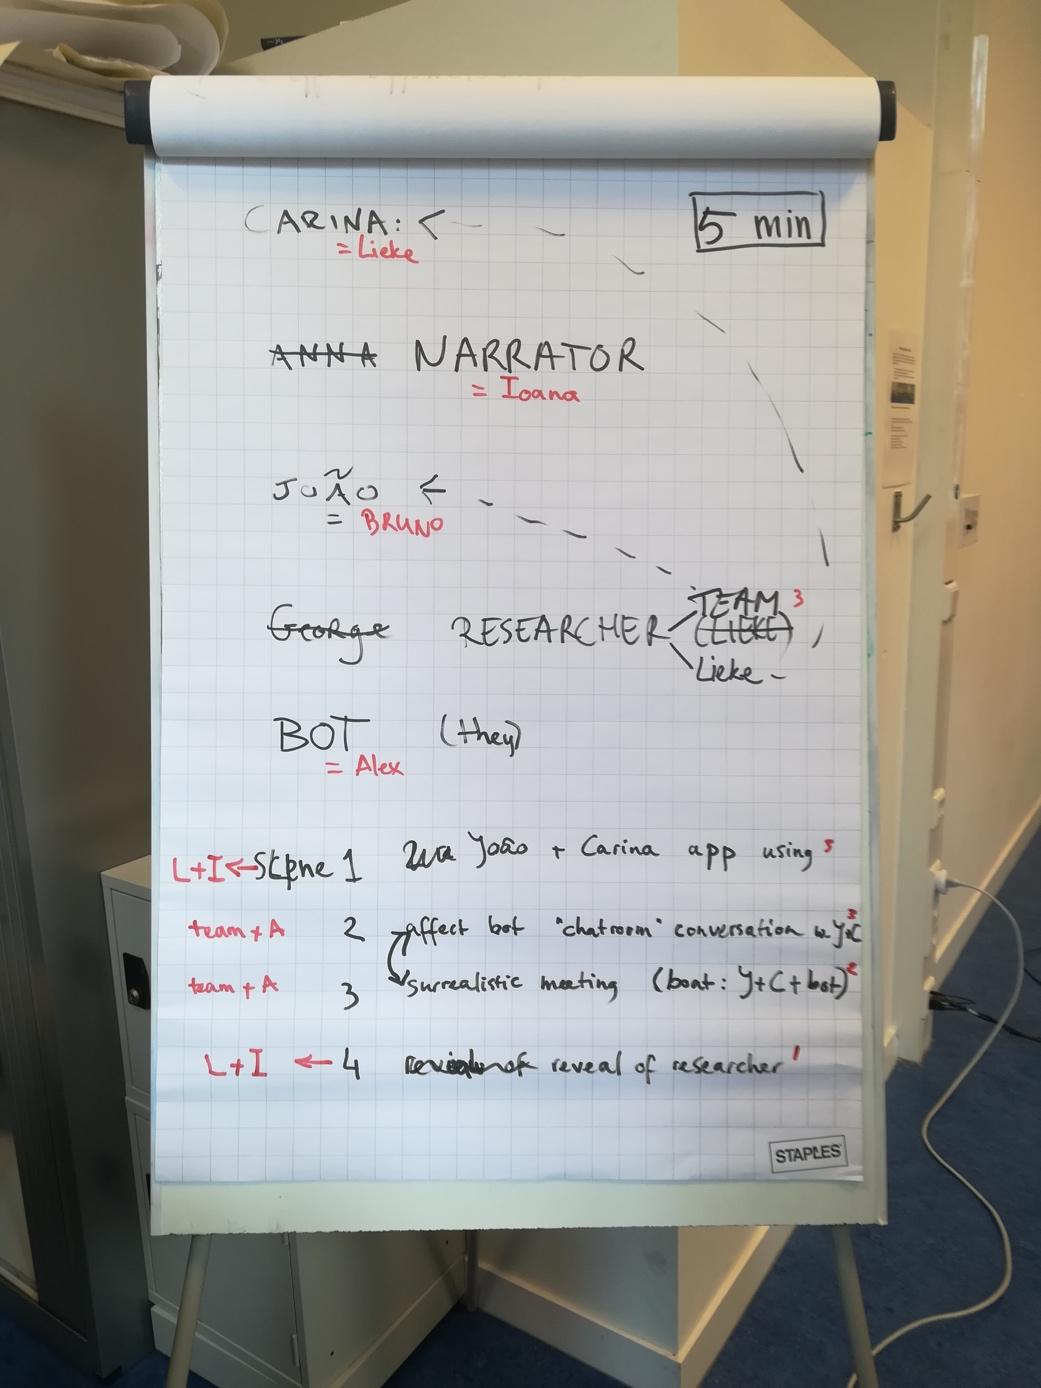 CARINA: <
5 min
= Lieke
ANNA NARRATOR
= Ioana
JOÃO ←
= BRUNO
TEAM 3
George RESEARCHER (LIEKE)
Lieke -
BOT (they)
= Alex
L+I ← Scene 1 João + Carina app using
team + A 2 affect bot "chatroom" conversation w J+C 3
team + A 3 surrealistic meeting (boat: J+C+bot) 2
L+I ← 4 reveal of researcher 1
STAPLES